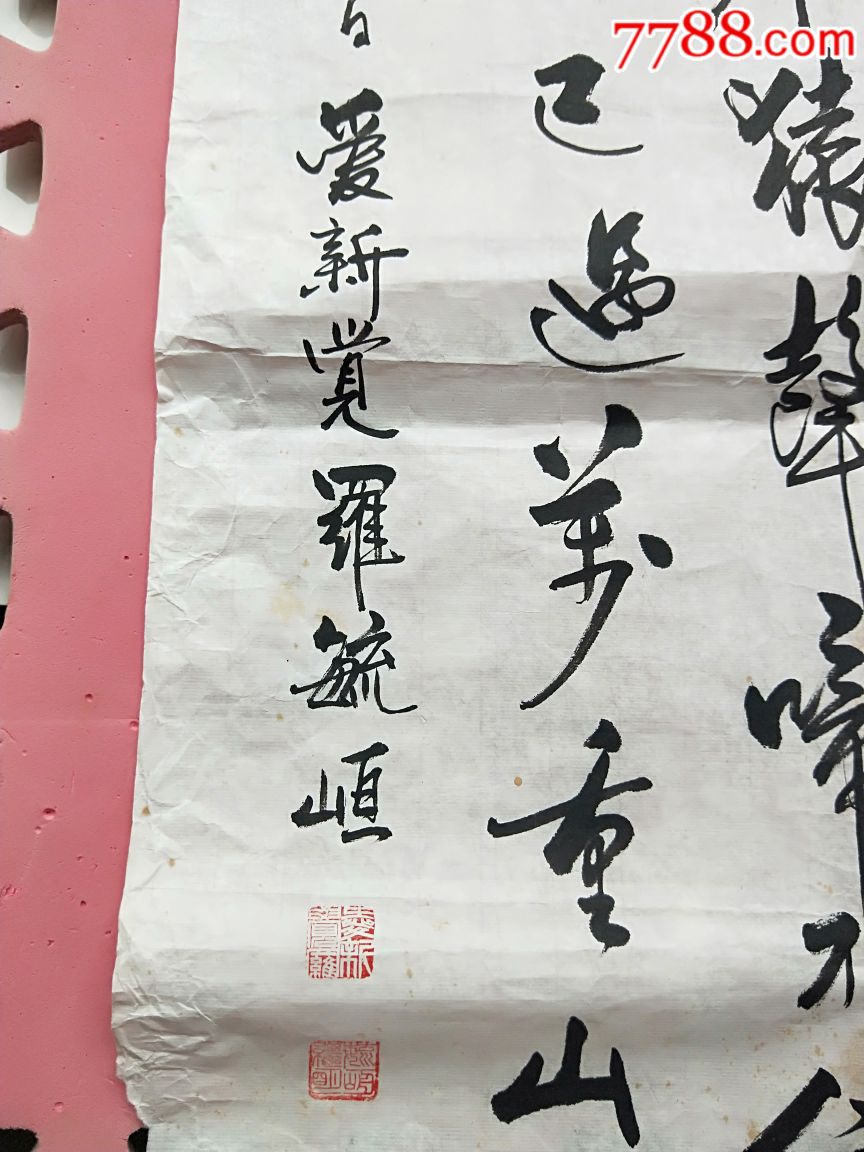 7788.com
猿聲啼不住
已過萬重山
愛新覺羅毓峘
愛新覺羅